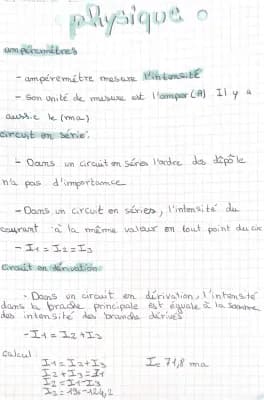 physique
ampéremétres
- ampéremétre mesure l'intensité
- son unité de mesure est l'amper (A) Il y a
aussie le (ma)
circuit en série.
- Dans un circuit en séries l'ordre des dipôle
n'a pas d'importance
- Dans un circuit en séries, l'intensité du
courant a la même valeur en tout point du cir
- I1 = I2 = I3
Circuit en dérivation
- Dans un circuit en dérivation, l'intensité
dans la branche principale est égale à la somme
des intensité des branche dérivés
- I1 = I2 + I3
calcul
I1 = I2 + I3
I2 + I3 = I1
I2 = I1 - I3
I2 = 196 - 124,2
I2 = 71,8 ma